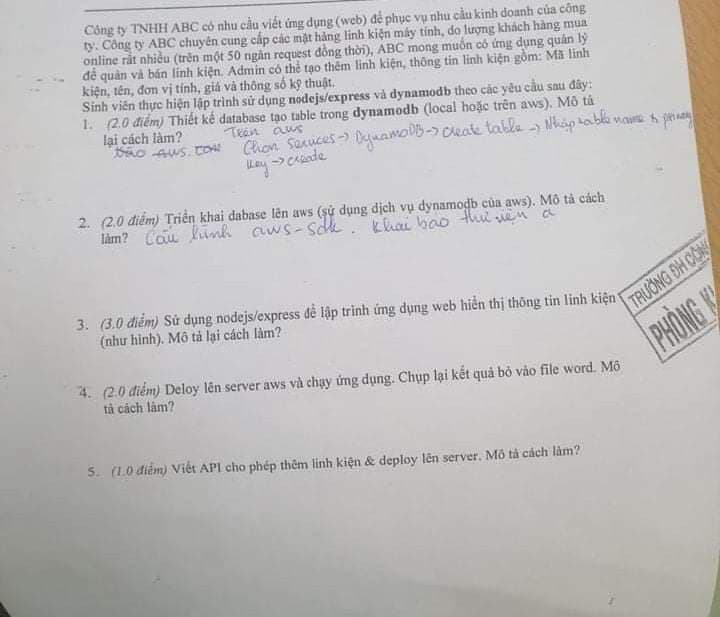 Công ty TNHH ABC có nhu cầu viết ứng dụng (web) để phục vụ nhu cầu kinh doanh của công
ty. Công ty ABC chuyên cung cấp các mặt hàng linh kiện máy tính, do lượng khách hàng mua
online rất nhiều (trên một 50 ngàn request đồng thời), ABC mong muốn có ứng dụng quản lý
để quản và bán linh kiện. Admin có thể tạo thêm linh kiện, thông tin linh kiện gồm: Mã linh
kiện, tên, đơn vị tính, giá và thông số kỹ thuật.
Sinh viên thực hiện lập trình sử dụng nodejs/express và dynamodb theo các yêu cầu sau đây:
1. (2.0 điểm) Thiết kế database tạo table trong dynamodb (local hoặc trên aws). Mô tả
lại cách làm?
Trên aws
Vào aws.com Chọn Services -> DynamoDB -> Create table -> Nhập table name & primary
key -> create
2. (2.0 điểm) Triển khai dabase lên aws (sử dụng dịch vụ dynamodb của aws). Mô tả cách
làm? Cấu hình aws-sdk. Khai báo thư viện a
3. (3.0 điểm) Sử dụng nodejs/express để lập trình ứng dụng web hiển thị thông tin linh kiện
(như hình). Mô tả lại cách làm?
TRƯỜNG ĐH CÔN
PHÒNG K
4. (2.0 điểm) Deloy lên server aws và chạy ứng dụng. Chụp lại kết quả bỏ vào file word. Mô
tả cách làm?
5. (1.0 điểm) Viết API cho phép thêm linh kiện & deploy lên server. Mô tả cách làm?